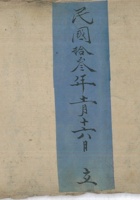 民國拾叁年二月十六日 立